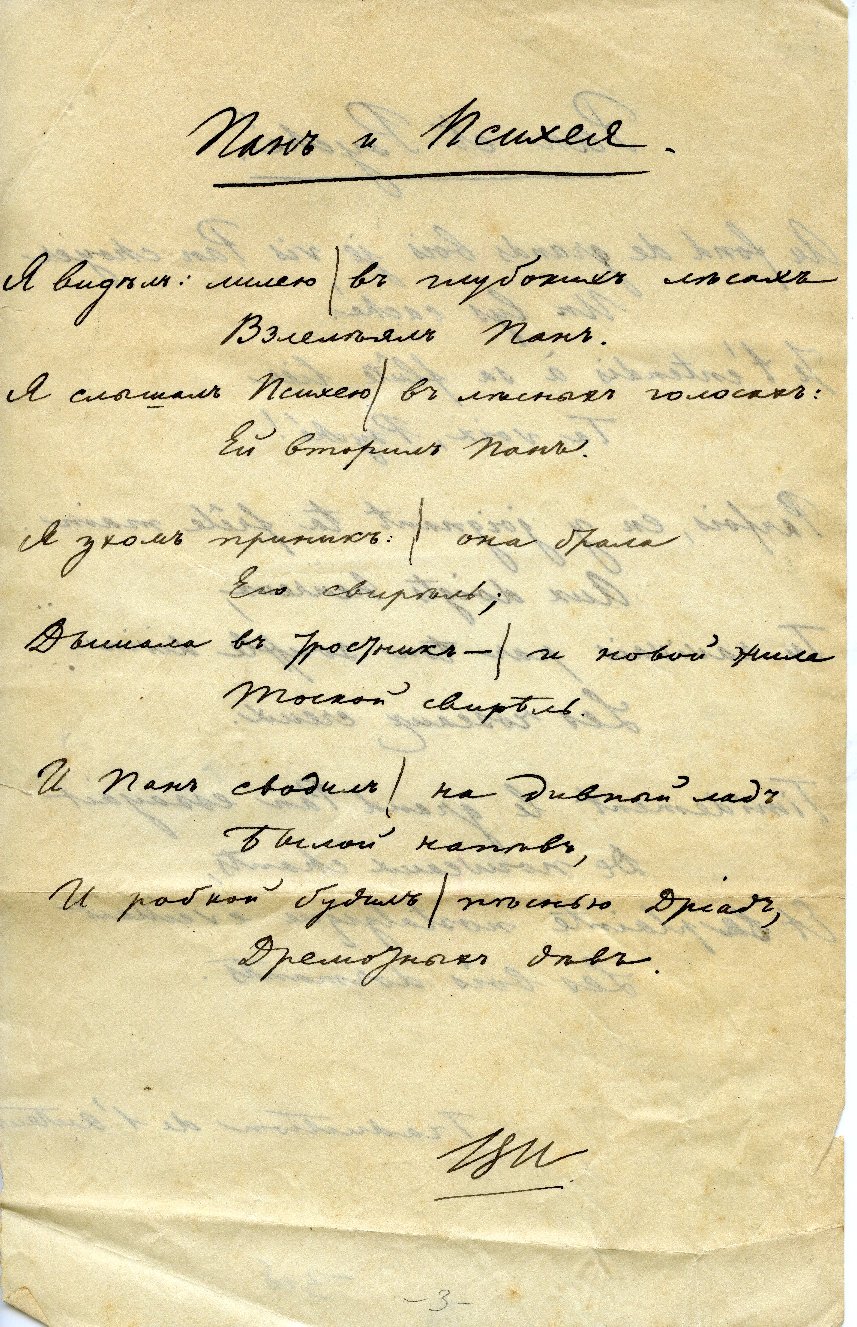 Панъ и Психея.
Я видѣлъ: лилею / въ глубокихъ лѣсахъ
Взлелѣялъ Панъ.
Я слышалъ Психею / въ лѣсныхъ голосахъ:
Ей вторилъ Панъ.
Я ухомъ приникъ: / она брала
Его свирѣль;
Дышала въ тростникъ — / и новой жила
Тоской свирѣль.
И Панъ сводилъ / на дивный ладъ
Былой напѣвъ,
И робкой будилъ / пѣснью Дріадъ,
Дремотныхъ дѣвъ.
ВИ
-3-